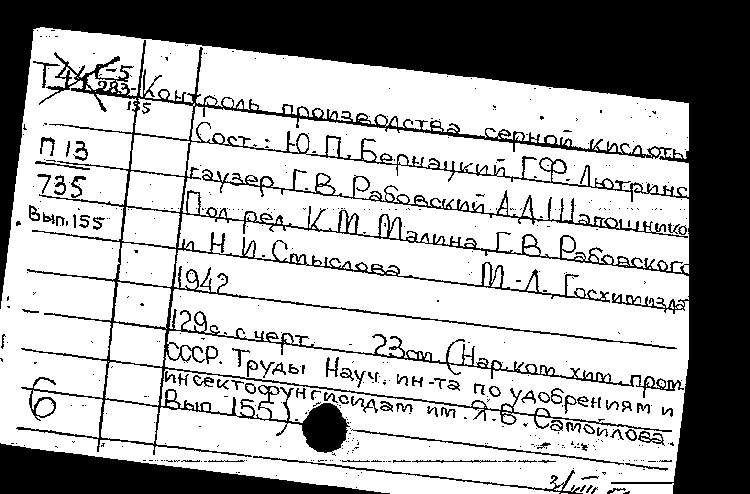 Г-5
283
155
Контроль производства серной кислоты
Сост.: Ю.П. Бернацкий, Г.Ф. Лютринс
П 13
гаузер, Г.В. Рабовский, А.Д. Шапошнико
735
Под ред. К.М. Малина, Г.В. Рабовского
Вып. 155
и Н.И. Смыслова. М.-Л., Госхимизда
1942
129с. с черт. 23см (Нар. ком. хим. пром.
СССР. Труды Науч. ин-та по удобрениям и
инсектофунгисидам им. Я.В. Самойлова.
Вып. 155)
6